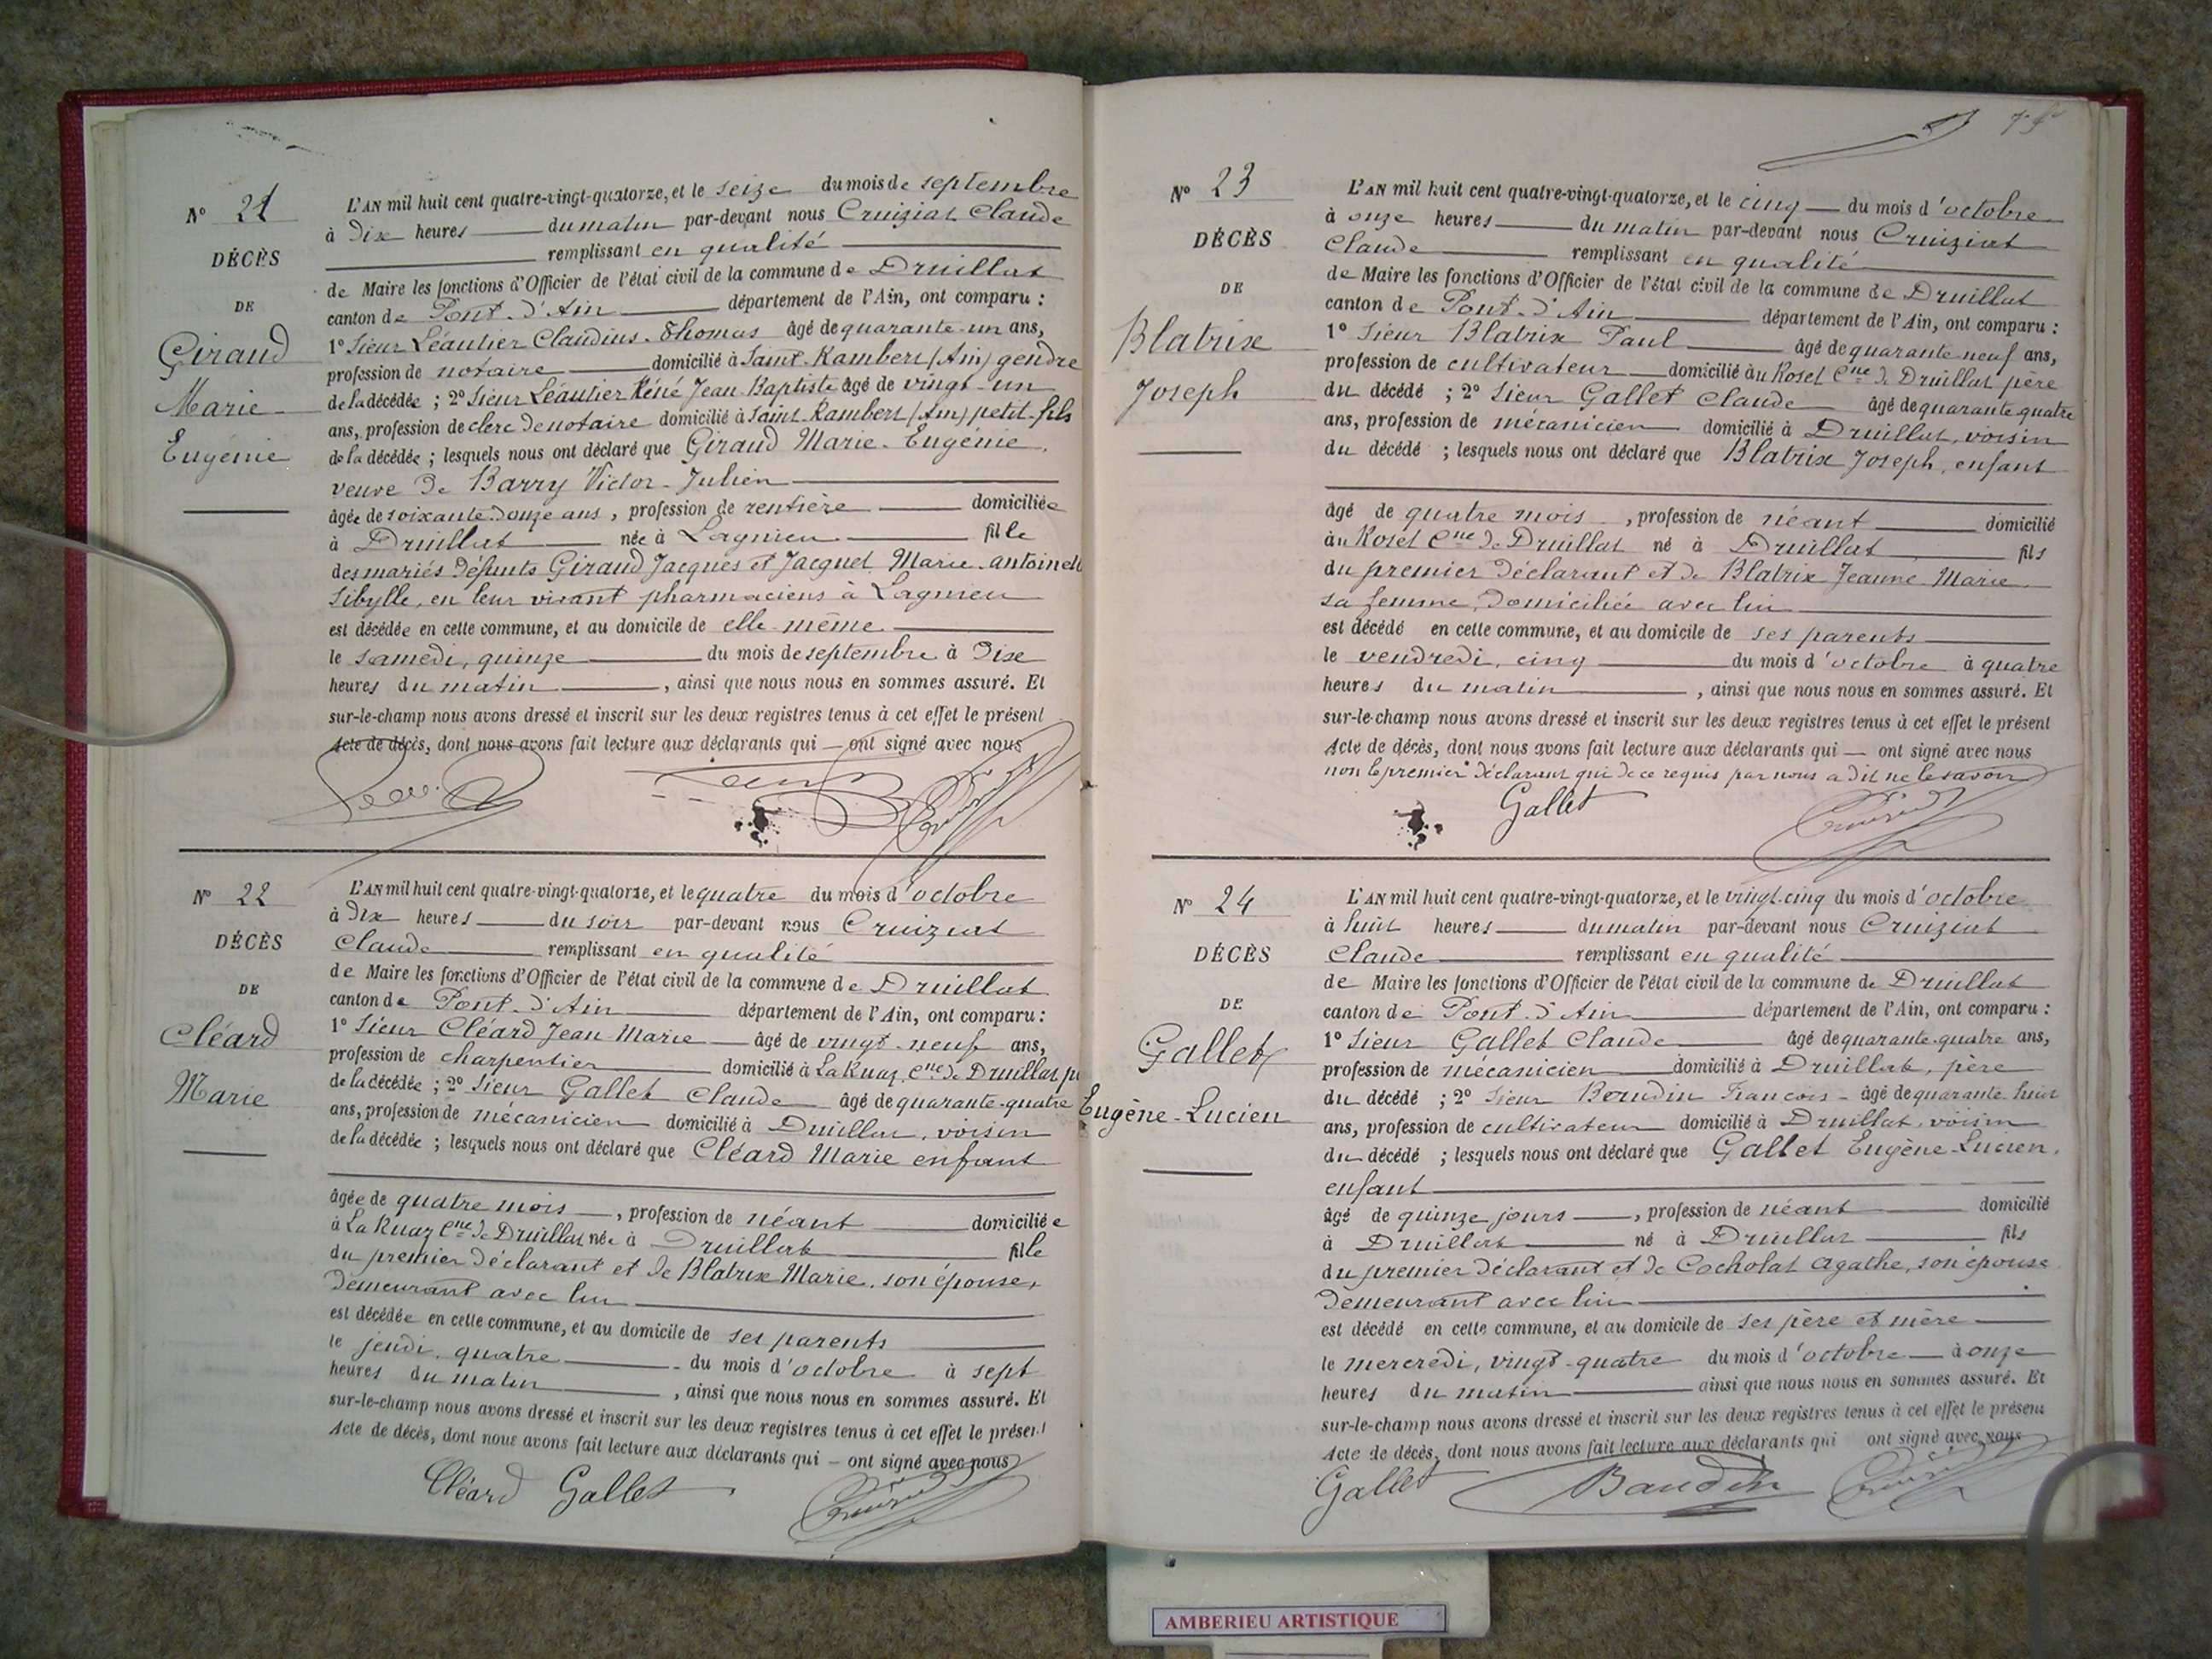 N° 21
DÉCÈS
DE
Giraud
Marie
Eugénie
L'AN mil huit cent quatre-vingt-quatorze, et le seize du mois de septembre
à Dix heures du matin par-devant nous Cruiziat Claude
remplissant en qualité
de Maire les fonctions d'Officier de l'état civil de la commune de Druillat
canton de Pont-d'Ain département de l'Ain, ont comparu :
1° Sieur Léautier Claudius-Thomas âgé de quarante-un ans,
profession de notaire domicilié à Saint-Rambert (Ain) gendre
de la décédée ; 2° Sieur Léautier Réné Jean Baptiste âgé de vingt-un
ans, profession de clerc de notaire domicilié à Saint-Rambert (Ain) petit-fils
de la décédée ; lesquels nous ont déclaré que Giraud Marie-Eugénie,
veuve de Barry Victor-Julien
âgée de soixante-douze ans, profession de rentière domiciliée
à Druillat née à Lagnieu fille
des mariés défunts Giraud Jacques et Jacquet Marie-antoinett
Sibylle, en leur vivant pharmaciens à Lagnieu
est décédée en cette commune, et au domicile de elle-même
le samedi, quinze du mois de septembre à Dix
heures du matin, ainsi que nous nous en sommes assuré. Et
sur-le-champ nous avons dressé et inscrit sur les deux registres tenus à cet effet le présent
Acte de décès, dont nous avons fait lecture aux déclarants qui — ont signé avec nous
N° 22
DÉCÈS
DE
Cléard
Marie
L'AN mil huit cent quatre-vingt-quatorze, et le quatre du mois d'octobre
à Dix heures du soir par-devant nous Cruiziat
Claude remplissant en qualité
de Maire les fonctions d'Officier de l'état civil de la commune de Druillat
canton de Pont-d'Ain département de l'Ain, ont comparu :
1° Sieur Cléard Jean-Marie âgé de vingt-neuf ans,
profession de charpentier domicilié à La Ruaz, Cne de Druillat, p
de la décédée ; 2° Sieur Gallet Claude âgé de quarante-quatre
ans, profession de mécanicien domicilié à Druillat, voisin
de la décédée ; lesquels nous ont déclaré que Cléard Marie enfant
âgée de quatre mois, profession de néant domiciliée
à La Ruaz Cne de Druillat née à Druillat fille
du premier déclarant et de Blatrix Marie, son épouse,
demeurant avec lui
est décédée en cette commune, et au domicile de ses parents
le jeudi, quatre du mois d'octobre à sept
heures du matin, ainsi que nous nous en sommes assuré. Et
sur-le-champ nous avons dressé et inscrit sur les deux registres tenus à cet effet le présent
Acte de décès, dont nous avons fait lecture aux déclarants qui — ont signé avec nous
Cléard Gallet Cruiziat
N° 23
DÉCÈS
DE
Blatrix
Joseph
L'AN mil huit cent quatre-vingt-quatorze, et le cinq du mois d'octobre
à onze heures du matin par-devant nous Cruiziat
Claude remplissant en qualité
de Maire les fonctions d'Officier de l'état civil de la commune de Druillat
canton de Pont-d'Ain département de l'Ain, ont comparu :
1° Sieur Blatrix Paul âgé de quarante-neuf ans,
profession de cultivateur domicilié au Roset Cne de Druillat père
du décédé ; 2° Sieur Gallet Claude âgé de quarante-quatre
ans, profession de mécanicien domicilié à Druillat, voisin
du décédé ; lesquels nous ont déclaré que Blatrix Joseph, enfant
âgé de quatre mois, profession de néant domicilié
au Roset Cne de Druillat né à Druillat fils
du premier déclarant et de Blatrix Jeanne-Marie,
sa femme, domiciliée avec lui
est décédé en cette commune, et au domicile de ses parents
le vendredi, cinq du mois d'octobre à quatre
heures du matin, ainsi que nous nous en sommes assuré. Et
sur-le-champ nous avons dressé et inscrit sur les deux registres tenus à cet effet le présent
Acte de décès, dont nous avons fait lecture aux déclarants qui — ont signé avec nous
non le premier déclarant qui de ce requis par nous a dit ne le savoir
Gallet Cruiziat
N° 24
DÉCÈS
DE
Gallet
Eugène-Lucien
L'AN mil huit cent quatre-vingt-quatorze, et le vingt-cinq du mois d'octobre
à huit heures du matin par-devant nous Cruiziat
Claude remplissant en qualité
de Maire les fonctions d'Officier de l'état civil de la commune de Druillat
canton de Pont-d'Ain département de l'Ain, ont comparu :
1° Sieur Gallet Claude âgé de quarante-quatre ans,
profession de mécanicien domicilié à Druillat, père
du décédé ; 2° Sieur Beaudin François âgé de quarante-huit
ans, profession de cultivateur domicilié à Druillat, voisin
du décédé ; lesquels nous ont déclaré que Gallet Eugène-Lucien,
enfant
âgé de quinze jours, profession de néant domicilié
à Druillat né à Druillat fils
du premier déclarant et de Cocholat Agathe, son épouse
demeurant avec lui
est décédé en cette commune, et au domicile de ses père et mère
le mercredi, vingt-quatre du mois d'octobre à onze
heures du matin ainsi que nous nous en sommes assuré. Et
sur-le-champ nous avons dressé et inscrit sur les deux registres tenus à cet effet le présent
Acte de décès, dont nous avons fait lecture aux déclarants qui ont signé avec nous
Gallet Baudin Cruiziat
AMBERIEU ARTISTIQUE